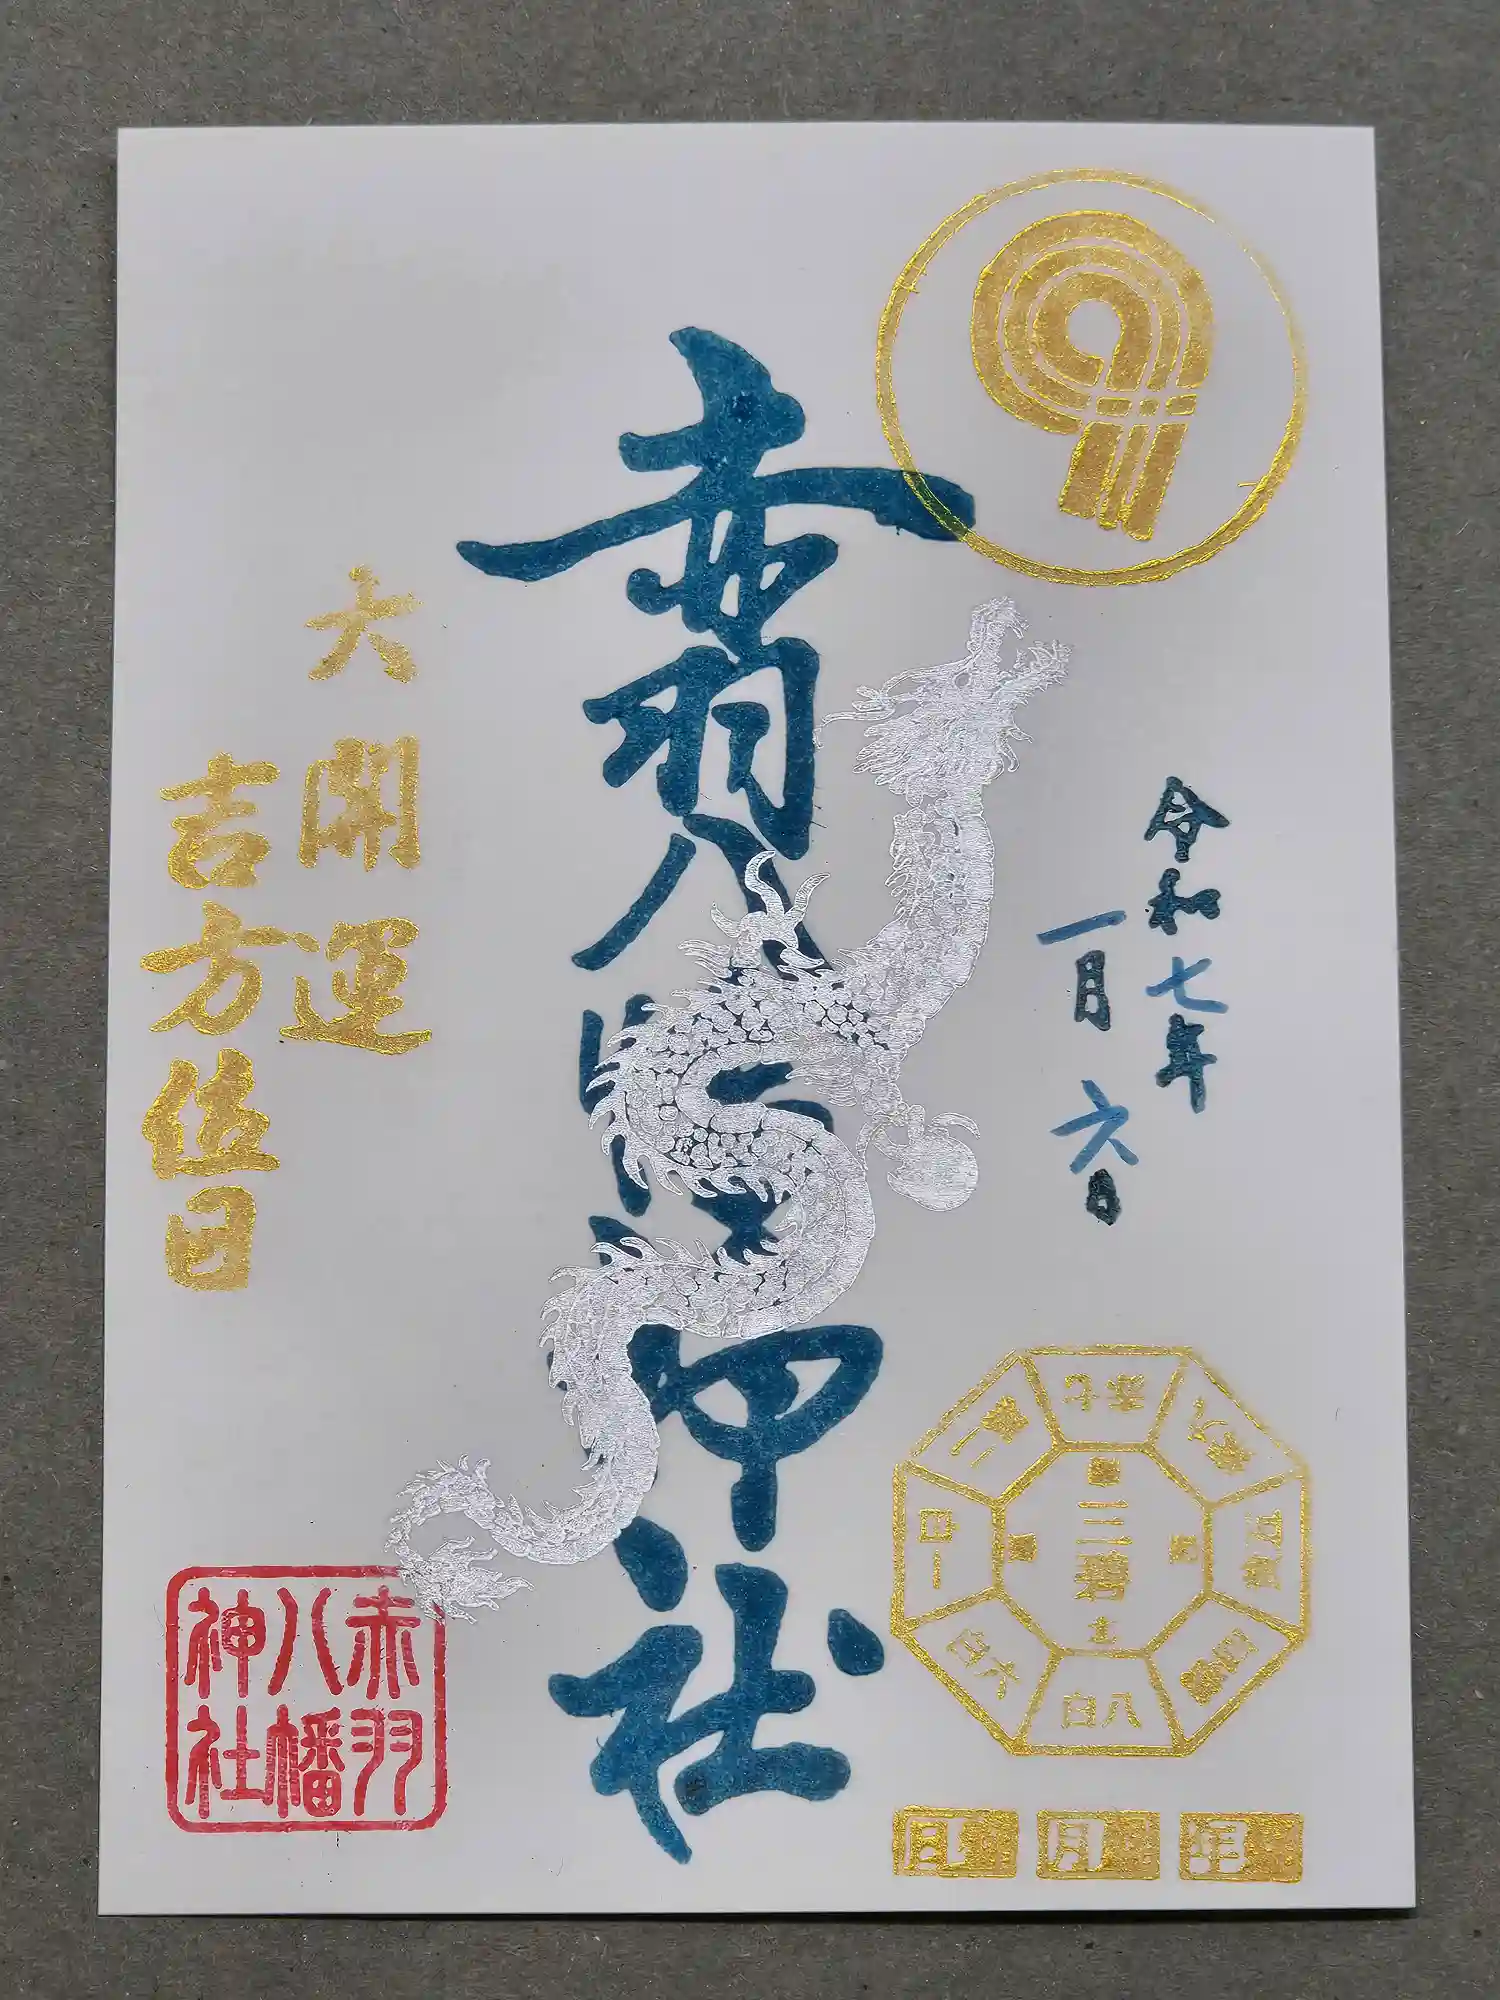 令和七年
一月六日
赤羽八幡神社
大開運
吉方位日
赤羽
八幡
神社
三碧
八白
六白
四緑
年
月
日